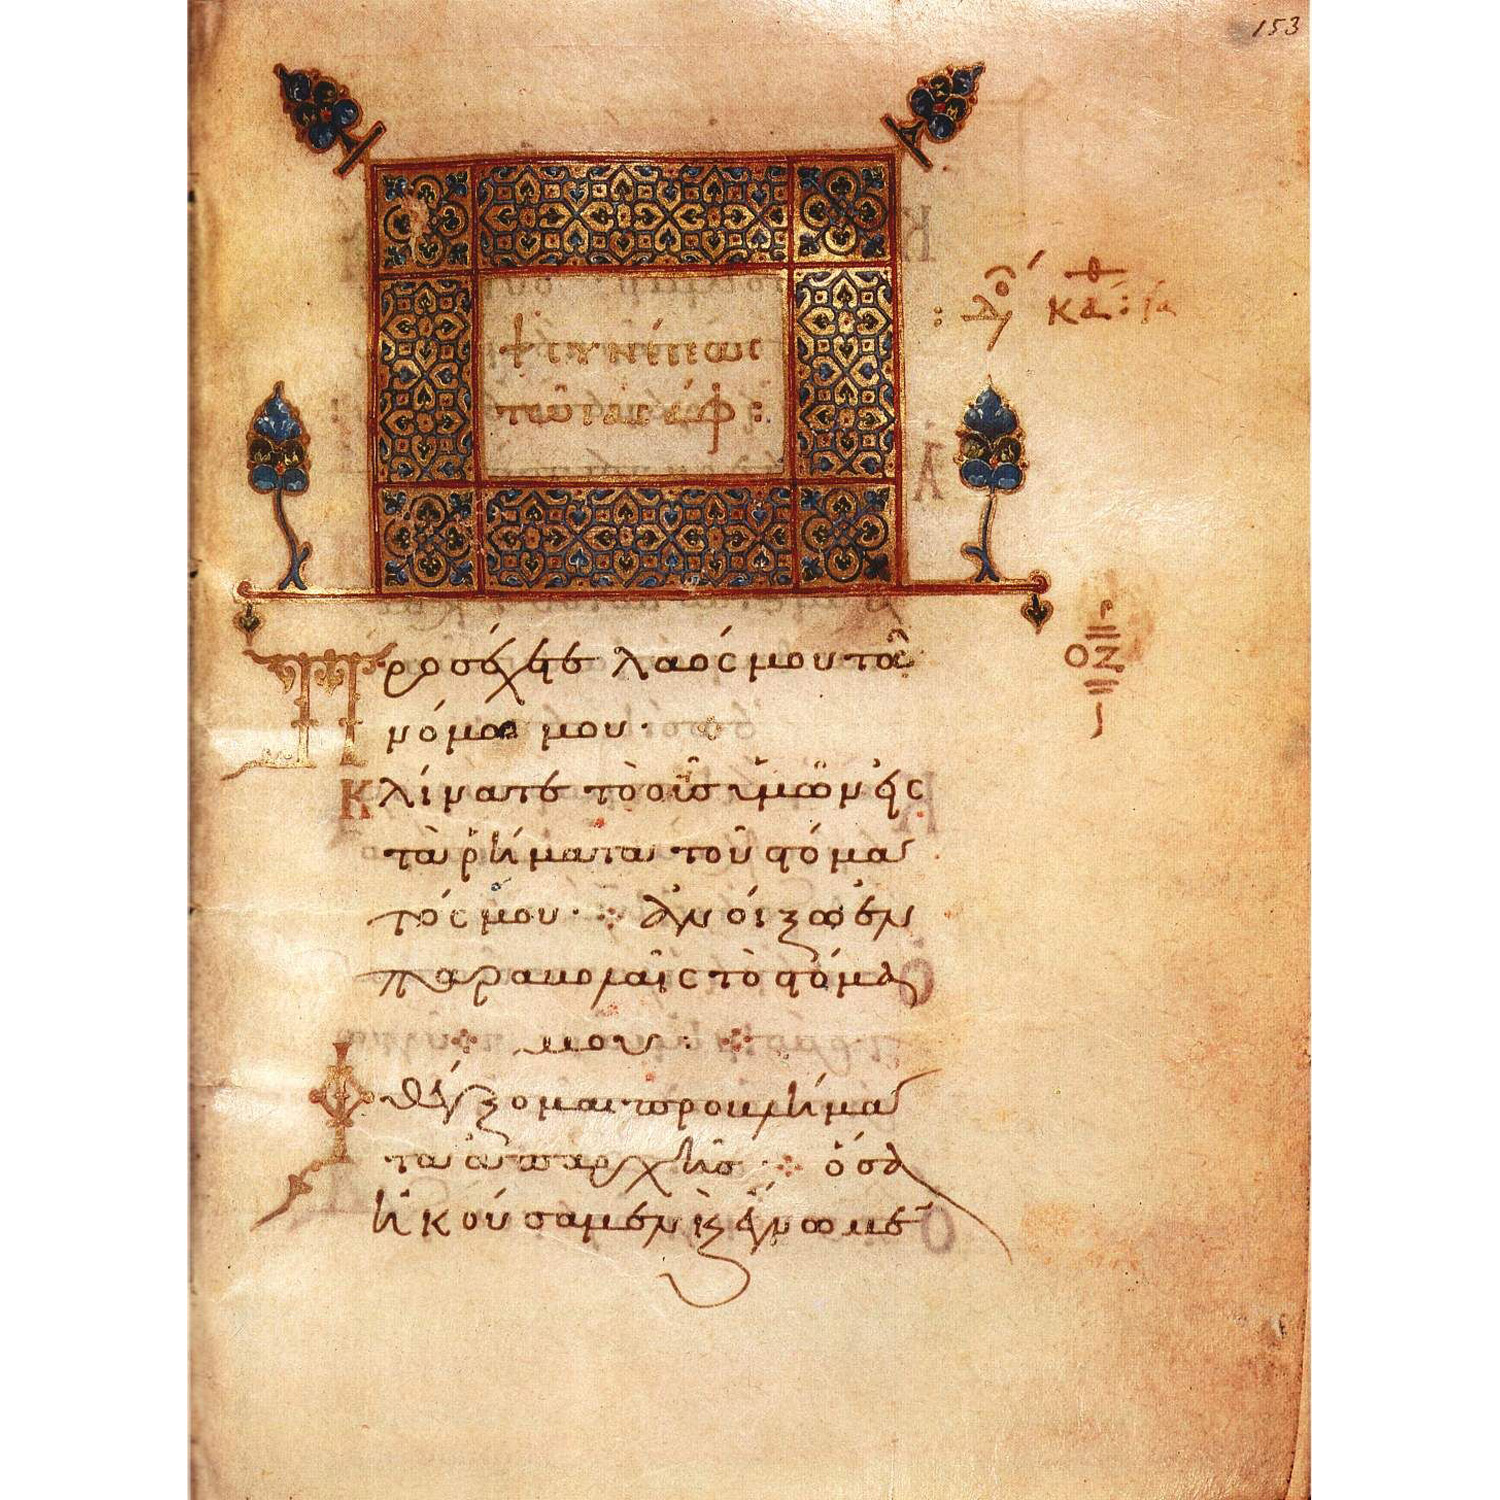 153
συνέσεως
τῶ ἀσάφ:
οζ
Προσέχετε λαός μου τῶ
νόμω μου·
Κλίνατε τὸ οὖς ὑμῶν εἰς
τὰ ῥήματα τοῦ στόμα
τός μου· ἀνοίξω ἐν
παραβολαῖς τὸ στόμα
μου·
Φθέγξομαι προβλήμα
τα ἀπαρχῆς ὅσα
ἠκούσαμεν κ ἔγνωμεν